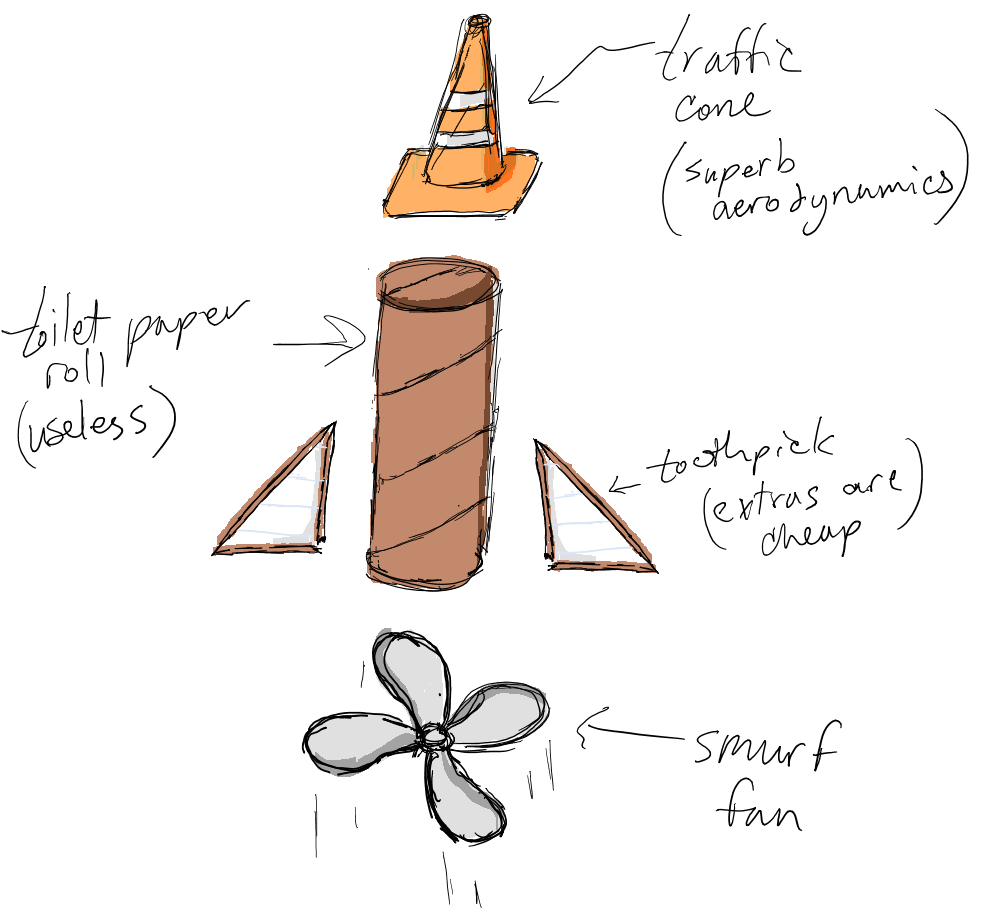 traffic
cone
(superb
aerodynamics)
toilet paper
roll
(useless)
toothpick
(extras are
cheap)
smurf
fan